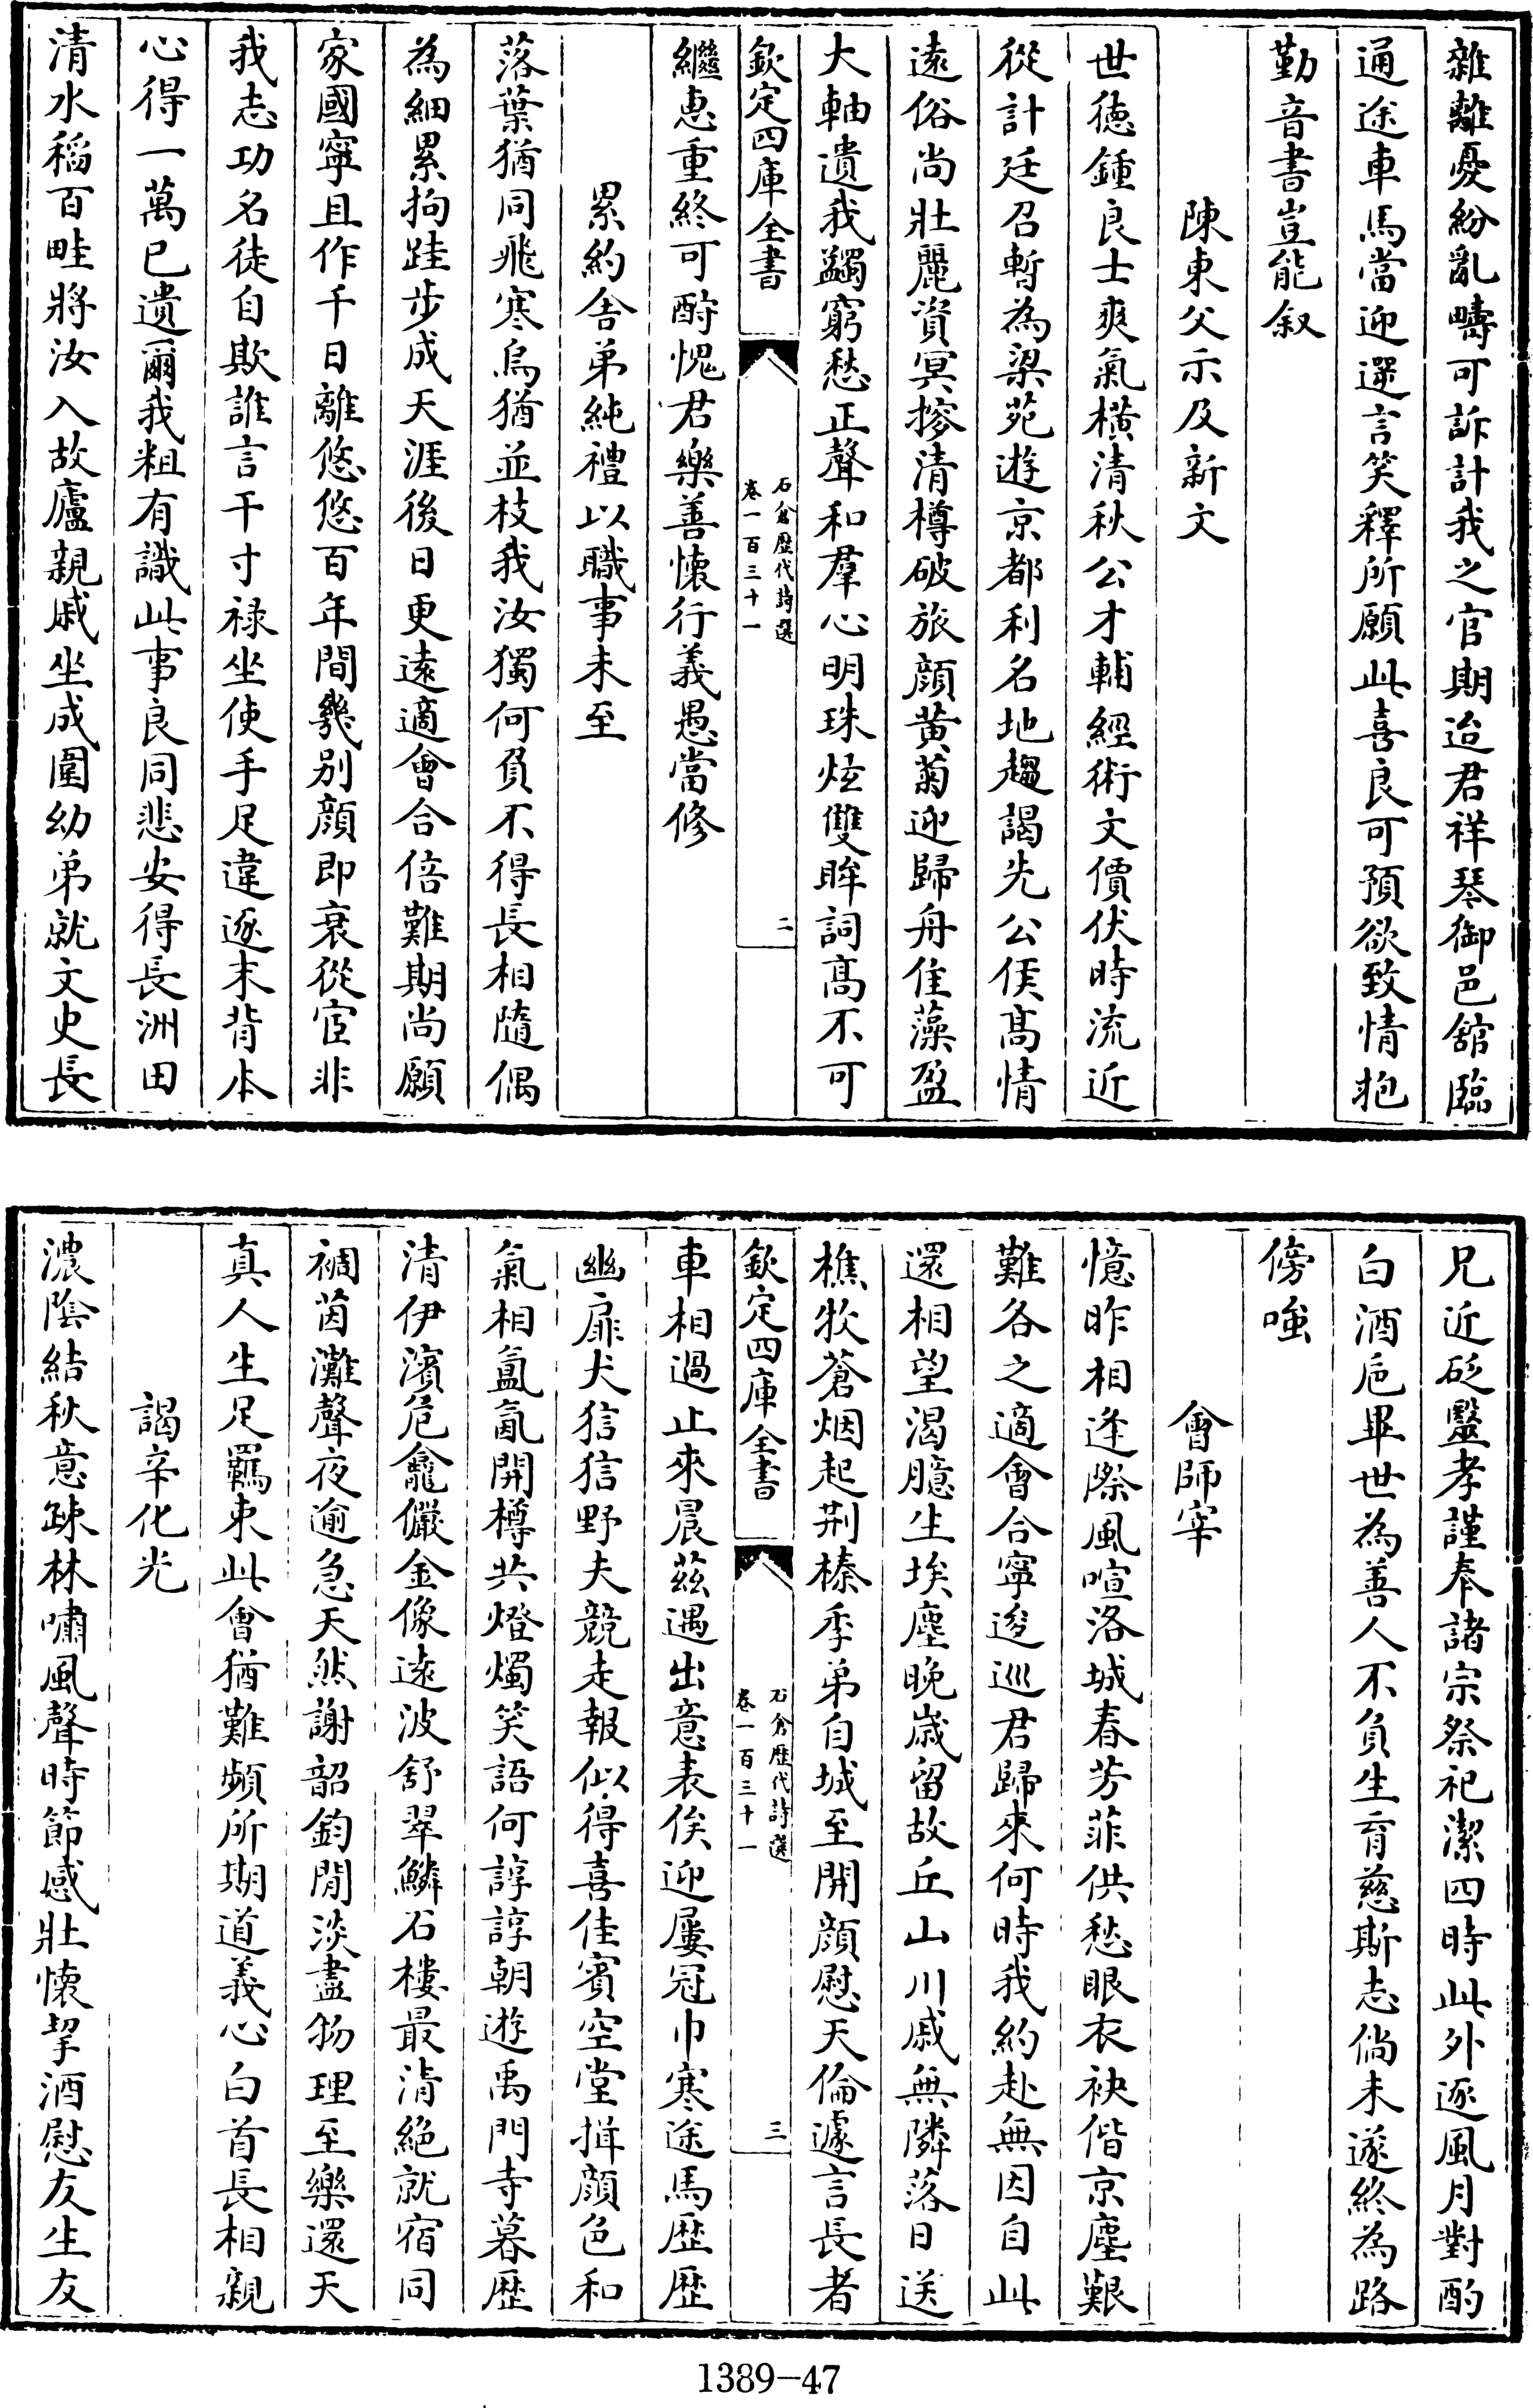 雜離憂紛亂疇可訴計我之官期迨君祥琴御邑舘臨
通途車馬當迎選言笑釋所願此喜良可預欲致情抱
勤音書豈能叙
陳東父示及新文
世徳鍾良士爽氣橫清秋公才輔經術文價伏時流近
從計廷召暫為梁苑遊京都利名地趨謁先公侯髙情
逺俗尚壯麗資冥摉清樽破旅顔黄菊迎歸舟隹藻盈
大軸遺我蠲窮愁正聲和羣心明珠炫雙眸詞髙不可
欽定四庫全書
石倉歴代詩選
卷一百三十一
二
繼惠重終可酧愧君樂善懷行義愚當修
累約舍弟純禮以職事未至
落葉猶同飛寒烏猶並枝我汝獨何負不得長相隨偶
為細累拘跬步成天涯後日更逺適會合倍難期尚願
家國寧且作千日離悠悠百年間幾别顔即衰從宦非
我志功名徒自欺誰言干寸禄坐使手足違逐末背本
心得一萬已遺爾我粗有識此事良同悲安得長洲田
清水稻百畦將汝入故廬親戚坐成圍幼弟就文史長
兄近砭盬孝謹奉諸宗祭祀潔四時此外逐風月對酌
白酒巵畢世為善人不負生育慈斯志倘未遂終為路
傍嗤
會師宰
憶昨相逢際風喧洛城春芳菲供愁眼衣袂偕京塵艱
難各之適會合寧逡巡君歸來何時我約赴無因自此
還相望渴臆生埃塵晚歳留故丘山川戚無隣落日送
樵牧蒼烟起荆榛季弟自城至開顔慰天倫遽言長者
欽定四庫全書
石倉歴代詩選
卷一百三十一
三
車相過止來晨茲遇出意表俟迎屢冠巾寒途馬歴歴
幽扉犬狺狺野夫競走報似得喜佳賓空堂揖顔色和
氣相氲氤開樽共燈燭笑語何諄諄朝遊禹門寺暮歴
清伊濱危龕儼金像逺波舒翠鱗石樓最清絶就宿同
裯茵灘聲夜逾急天然謝韶鈞閒淡盡物理至樂還天
真人生足羈束此會猶難頻所期道義心白首長相親
謁辛化光
濃隂結秋意疎林嘯風聲時節感壯懷挈酒慰友生友
1389-47